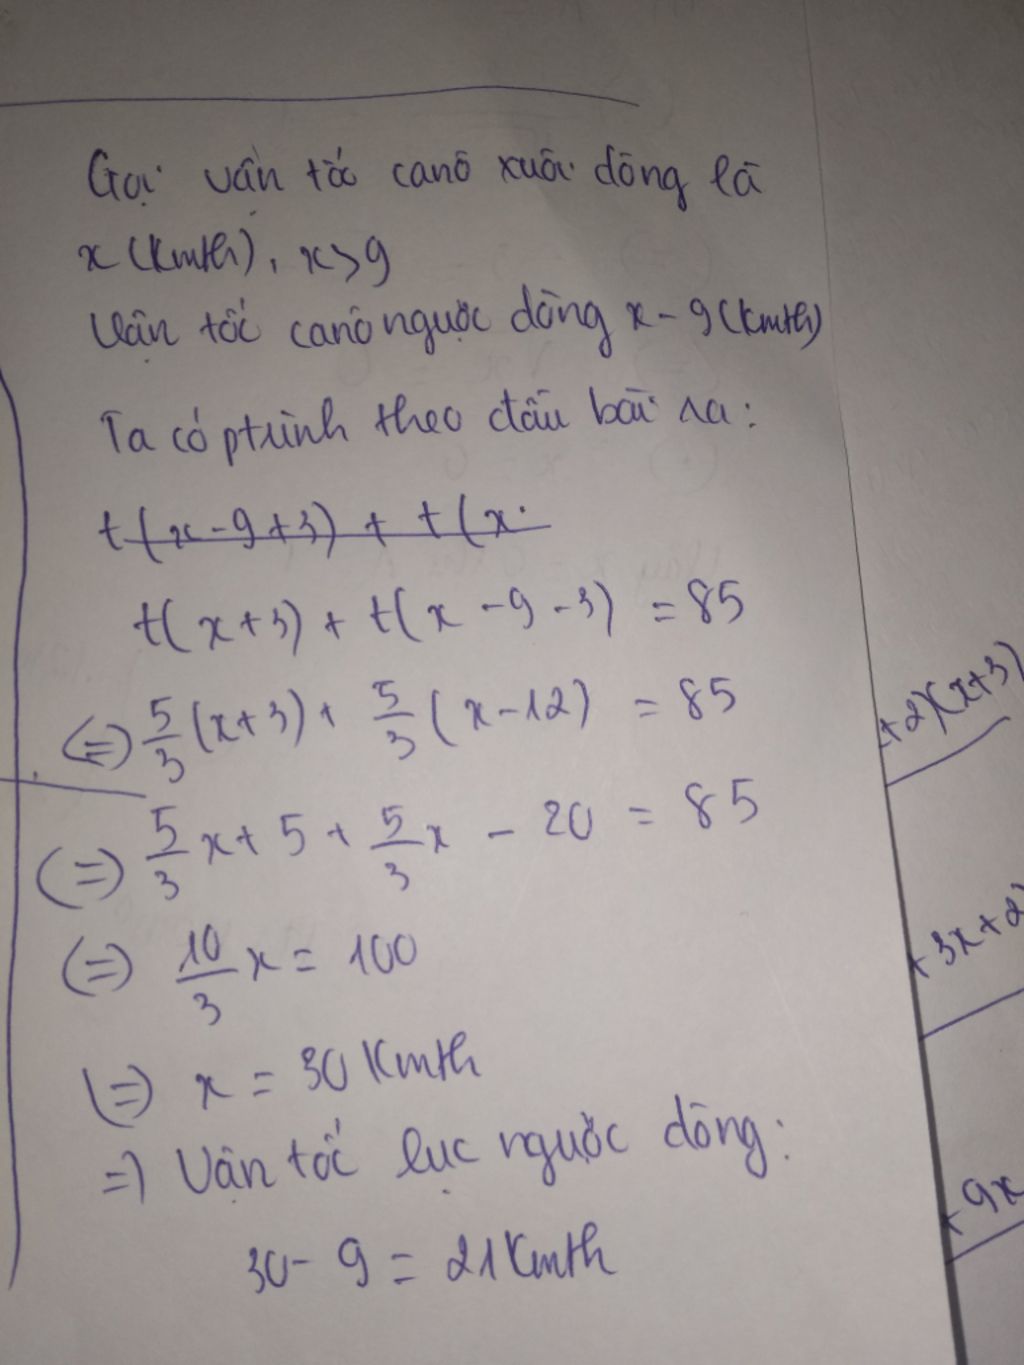 Gọi vận tốc canô xuôi dòng là
x (km/h), x > 9
Vận tốc canô ngược dòng x - 9 (km/h)
Ta có ptrình theo đầu bài ra:
t(x - 9 + 3) + t(x
t(x + 3) + t(x - 9 - 3) = 85
(=) 5/3 (x + 3) + 5/3 (x - 12) = 85
(=) 5/3 x + 5 + 5/3 x - 20 = 85
(=) 10/3 x = 100
(=) x = 30 Km/h
=) Vận tốc lục ngược dòng:
30 - 9 = 21 Km/h
+2)(x+3)
+3x+2
+9x